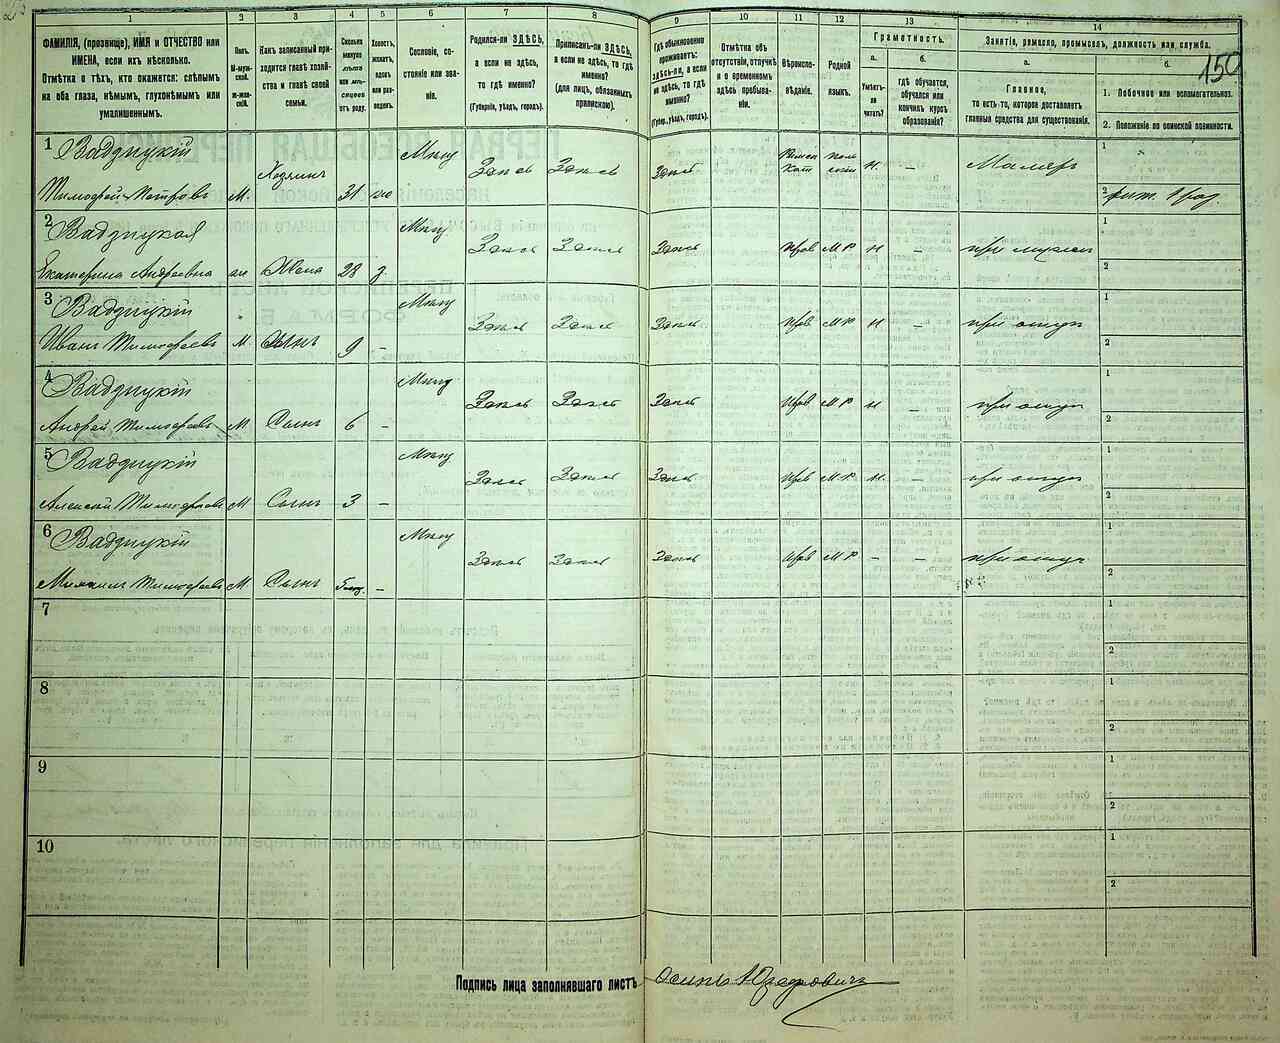 1
2
3
4
5
6
7
8
9
10
11
12
13
14
ФАМИЛІЯ, (прозвище), ИМЯ и ОТЧЕСТВО или
ИМЕНА, если ихъ нѣсколько.
Отмѣтка о тѣхъ, кто окажется: слѣпымъ
на оба глаза, нѣмымъ, глухонѣмымъ или
умалишеннымъ.
Полъ.
М-муж-
ской.
ж-жен-
скій.
Какъ записанный при-
ходится главѣ хозяй-
ства и главѣ своей
семьи.
Сколько
минуло
лѣтъ
или мѣ-
сяцевъ
отъ роду.
Холостъ,
женатъ,
вдовъ
или раз-
веденъ.
Сословіе, со-
стояніе или зва-
ніе.
Родился-ли ЗДѢСЬ,
а если не здѣсь,
то гдѣ именно?
(Губернія, уѣздъ, городъ).
Приписанъ-ли ЗДѢСЬ,
а если не здѣсь, то гдѣ
именно?
(для лицъ, обязанныхъ
припискою).
Гдѣ обыкновенно
проживаетъ:
здѣсь-ли, а если
не здѣсь, то гдѣ
именно?
(Губерн., уѣздъ, городъ).
Отмѣтка объ
отсутствіи, отлучкѣ
и о временномъ
здѣсь пребыва-
ніи.
Вѣроиспо-
вѣданіе.
Родной
языкъ.
Грамотность.
а.
Умѣетъ-
ли
читать?
б.
гдѣ обучается,
обучался или
кончилъ курсъ
образованія?
Занятіе, ремесло, промыселъ, должность или служба.
а.
Главное,
то есть то, которое доставляетъ
главныя средства для существованія.
б.
150
1. Побочное или вспомогательное.
2. Положеніе по воинской повинности.
1
Вадзицкій
Тимофей Петровъ
М.
Хозяинъ
31
Мѣщ
Здѣсь
Здѣсь
Здѣсь
Римск
Кат
поль
скій
н.
-
Маляръ
1
2
рат. 1 раз.
2
Вадзицкая
Екатерина Андреевна
жн
Жена
28
з
Мѣщ
Здѣсь
Здѣсь
Здѣсь
Прав
М Р
н
-
при мужѣ
1
2
3
Вадзицкій
Иванъ Тимофеевъ
М
Сынъ
9
-
Мѣщ
Здѣсь
Здѣсь
Здѣсь
Прав
М Р
н
-
при отцѣ
1
2
4
Вадзицкій
Андрей Тимофеевъ
М
Сынъ
6
-
Мѣщ
Здѣсь
Здѣсь
Здѣсь
Прав
М Р
н
-
при отцѣ
1
2
5
Вадзицкій
Алексѣй Тимофеевъ
М
Сынъ
3
-
Мѣщ
Здѣсь
Здѣсь
Здѣсь
Прав
М Р
н.
-
при отцѣ
1
2
6
Вадзицкій
Михаилъ Тимофеевъ
М
Сынъ
-
Мѣщ
Здѣсь
Здѣсь
Здѣсь
Прав
М Р
-
-
при отцѣ
1
2
7
1
2
8
1
2
9
1
2
10
1
2
Подпись лица заполнявшаго листъ
Осипъ